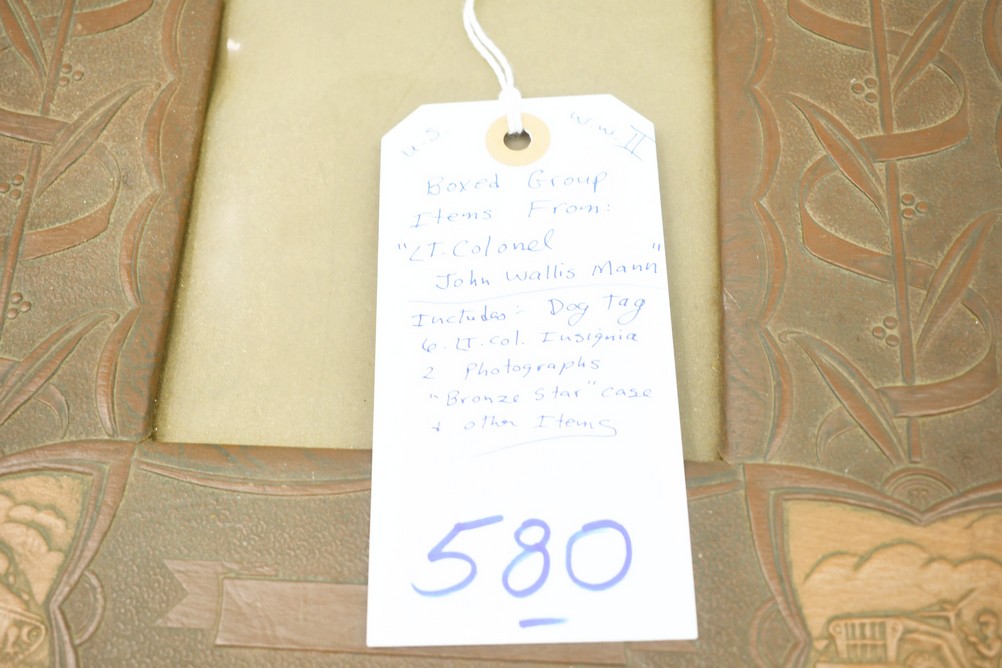 U.S. W.W. II
Boxed Group
Items From:
"LT. Colonel
John Wallis Mann"
Includes: Dog Tag
6. LT. Col. Insignia
2 Photographs
"Bronze Star" case
+ other Items
580